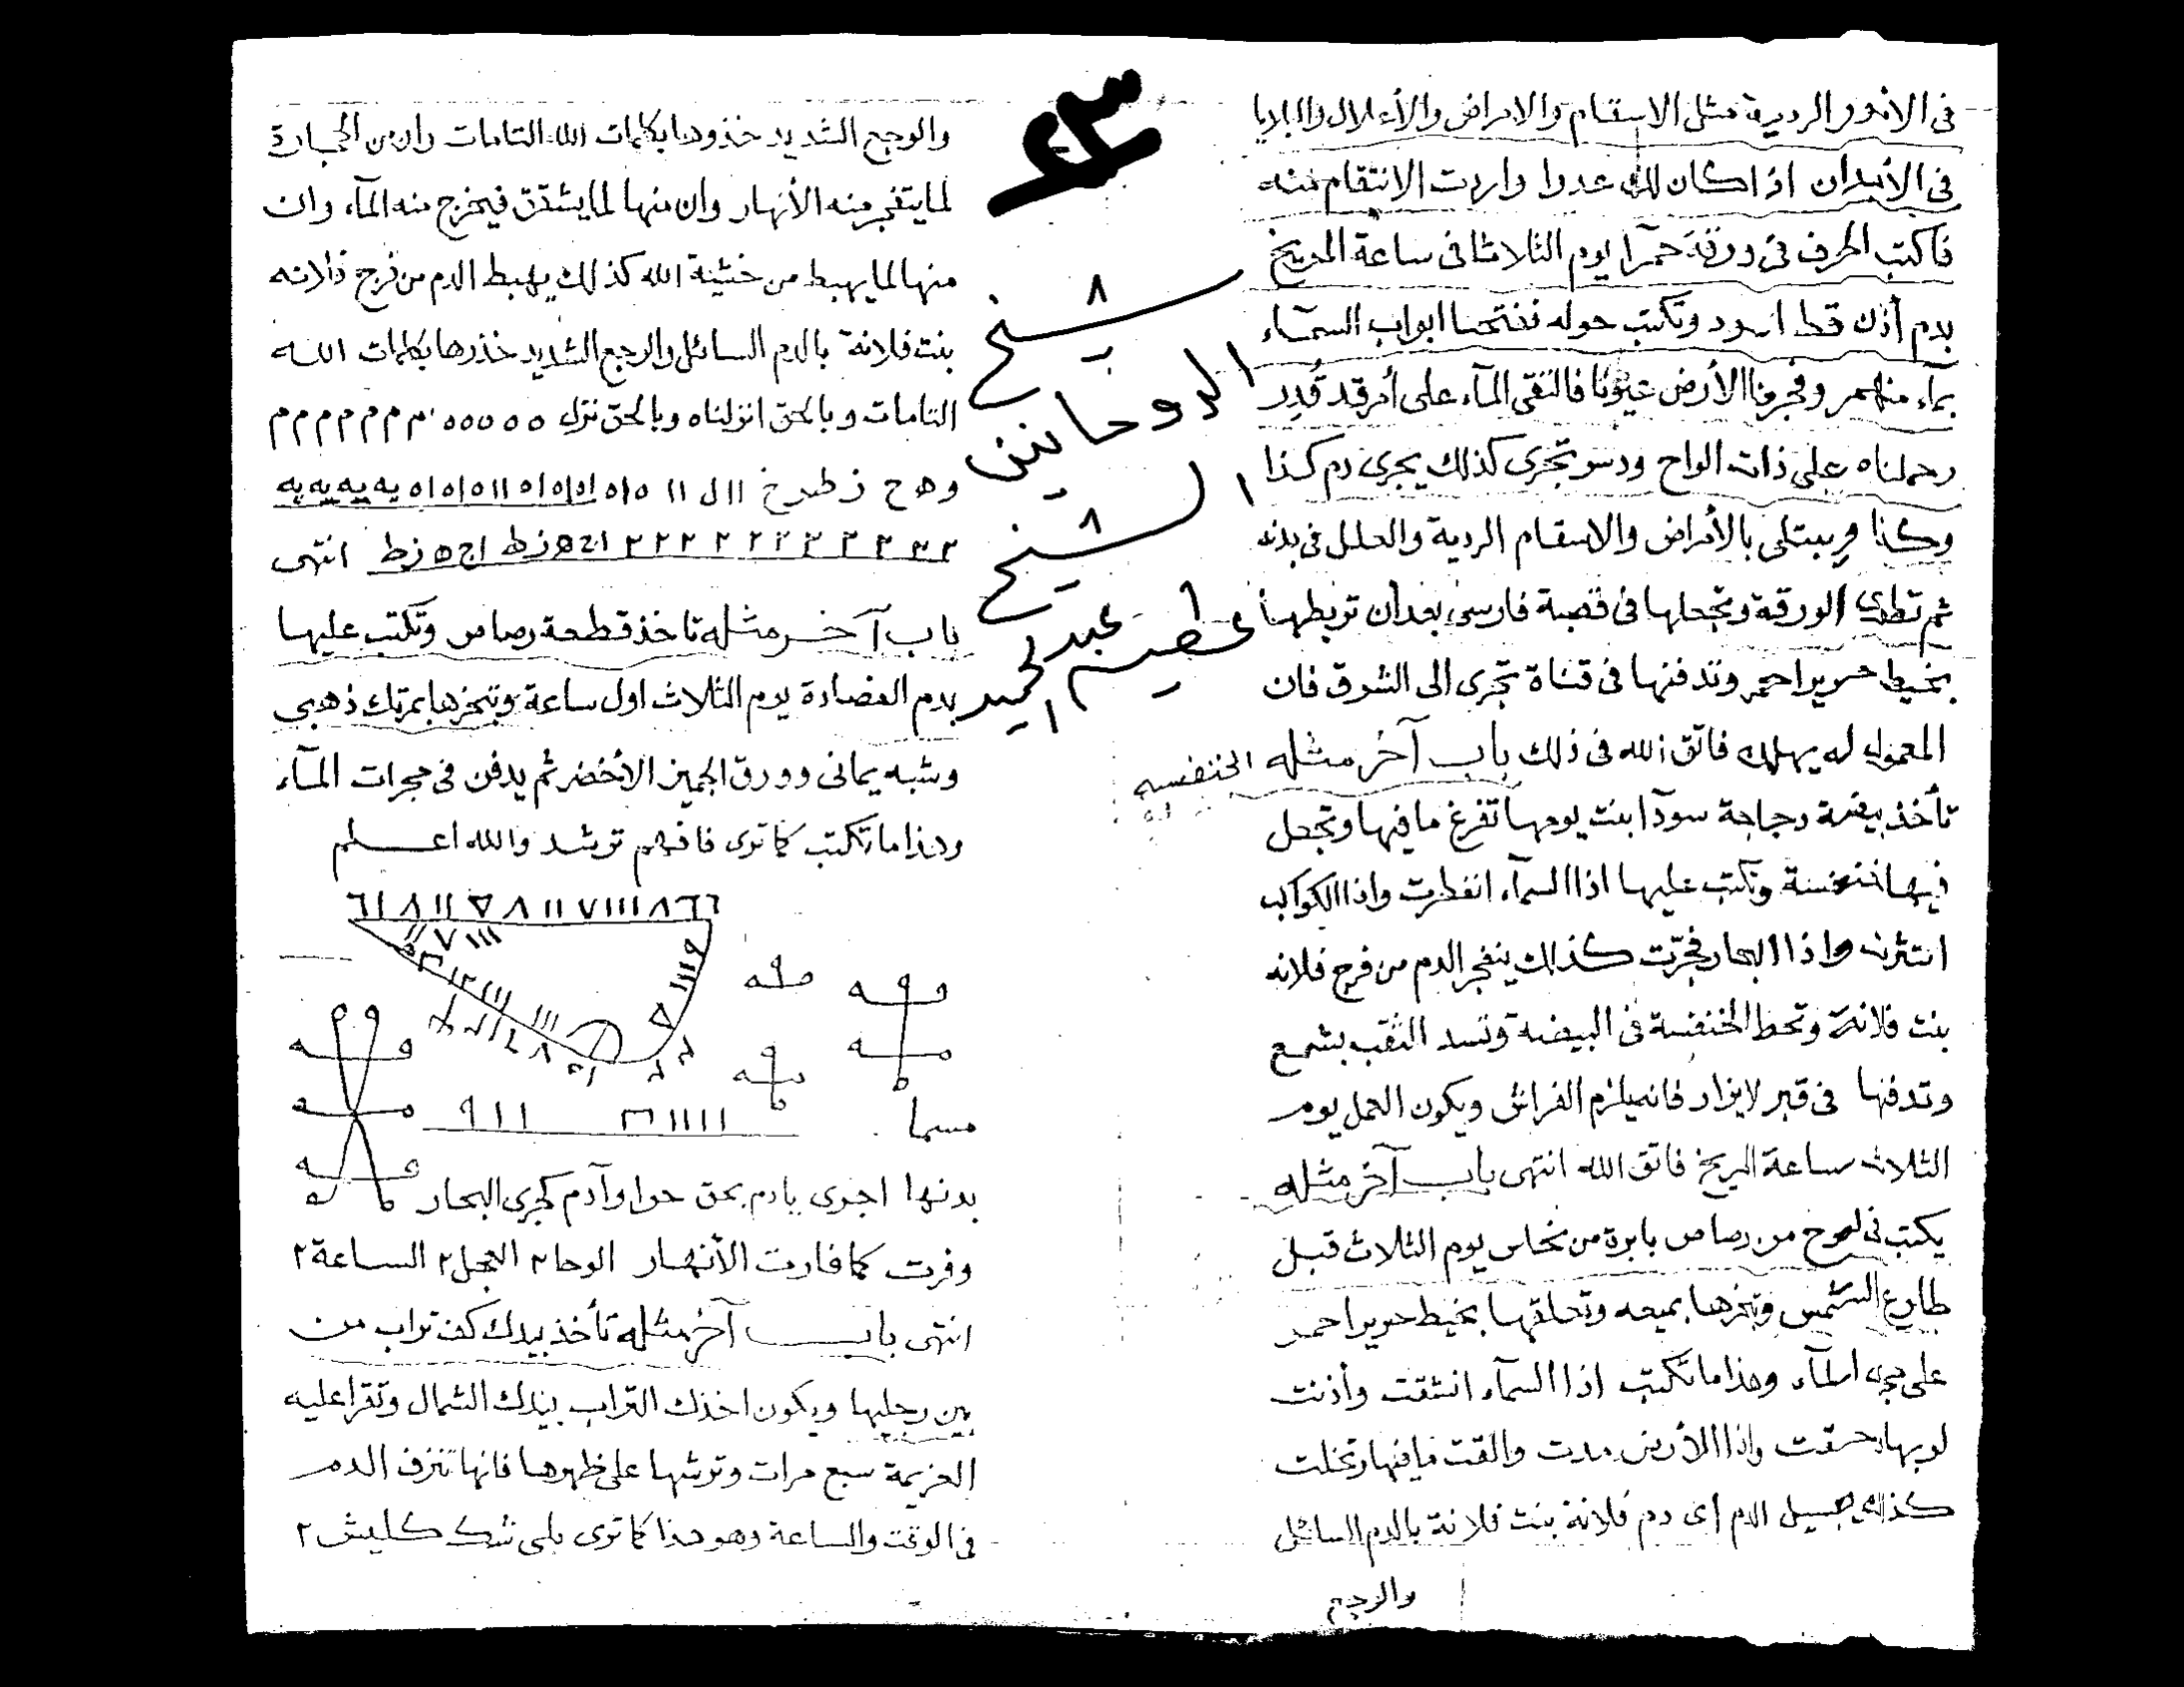 فى الأمور الردية مثل الاسقام والامراض والأعلال والبلايا
فى الأبدان اذا كان لك عدوا واردت الانتقام منه
فاكتب الحرف فى ورقة حمرآ يوم الثلاثا فى ساعة المريخ
بدم أذن قط اسود وتكتب حوله ففتحنا ابواب السمآء
بمآء منهمر وفجرنا الأرض عيونا فالتقى المآء على أمر قد قدر
وحملناه على ذات الواح ودسر تجرى كذلك يجرى دم كذا
وكذا ويبتلى بالأمراض والاسقام الردية والعلل فى بدنه
ثم تطوى الورقة وتجعلها فى قصبة فارسى بعد ان تربطها
بخيط حرير احمر وتدفنها فى قناة تجرى الى الشرق فان
المعمول له يهلك فاتق الله فى ذلك باب آخر مثله الخنفسه
تأخذ بيضة دجاجة سودآ بنت يومها تفرغ ما فيها وتجعل
فيها خنفسة وتكتب عليها اذا السمآء انفطرت واذا الكواكب
انتثرت واذا البحار فجرت كذلك ينفجر الدم من فرج فلانه
بنت فلانة وتحط الخنفسة فى البيضة وتسد الثقب بشمع
وتدفنها فى قبر لايزار فانه يلزم الفراش ويكون العمل يوم
الثلاث ساعة المريخ فاتق الله انتهى باب آخر مثله
يكتب فى لوح من رصاص بابرة من نحاس يوم الثلاث قبل
طلوع الشمس وتبخرها بميعه وتعلقها بخيط حرير احمر
على مجرى المآء وهذا ما تكتب اذا السمآء انشقت وأذنت
لربها وحقت واذا الأرض مدت والقت ما فيها وتخلت
كذلك يسيل الدم اى دم فلانة بنت فلانة بالدم السائل
والوجع
٤٣
شيخ
الروحانين
الشيخ
عبد
والوجع الشديد خذوها بكلمات الله التامات وان من الحجارة
لما يتفجر منه الأنهار وان منها لما يشقق فيخرج منه المآء وان
منها لما يهبط من خشية الله كذلك يهبط الدم من فرج فلانه
بنت فلانة بالدم السائل والوجع الشديد خذوها بكلمات الله
التامات وبالحق انزلناه وبالحق نزل ه ه ه ه ه م م م م م م م
انتهى
باب آخر مثله تاخذ قطعة رصاص وتكتب عليها
بدم الفصادة يوم الثلاث اول ساعة وتبخرها بمرتك ذهبى
وشبه يمانى وورق الجميز الأخضر ثم يدفن فى مجرات المآء
وهذا ما تكتب كما ترى فافهم ترشد والله اعلم
بدنها اجرى يا دم بحق حوا وآدم كجرى البحار
وفرت كما فارت الأنهار الوحا ٢ العجل ٢ الساعة ٢
انتهى باب آخر مثله تأخذ بيدك كف تراب من
بين رجليها ويكون اخذك التراب بيدك الشمال وتقرا عليه
العزيمة سبع مرات وترشها على ظهرها فانها تنزف الدم
فى الوقت والساعة وهو هذا كما ترى بلى شك كليش ٢